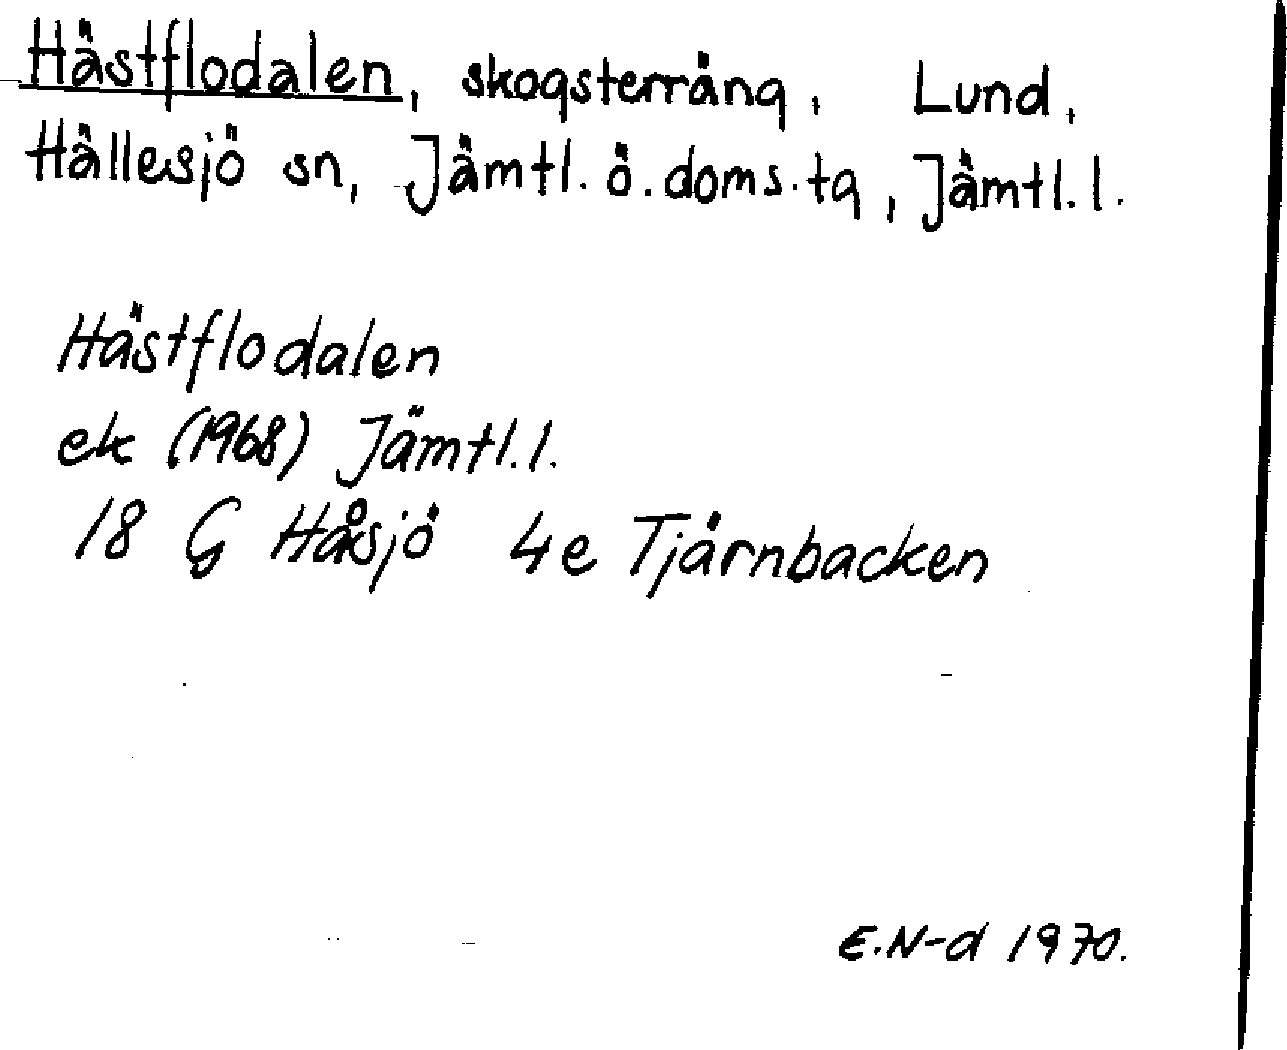 Hästflodalen, skogsterräng, Lund,
Hällesjö sn, Jämtl. ö. doms. tg, Jämtl. l.
Hästflodalen
ek (1968) Jämtl. l.
18 G Håsjö 4e Tjärnbacken
E. N-d 1970.